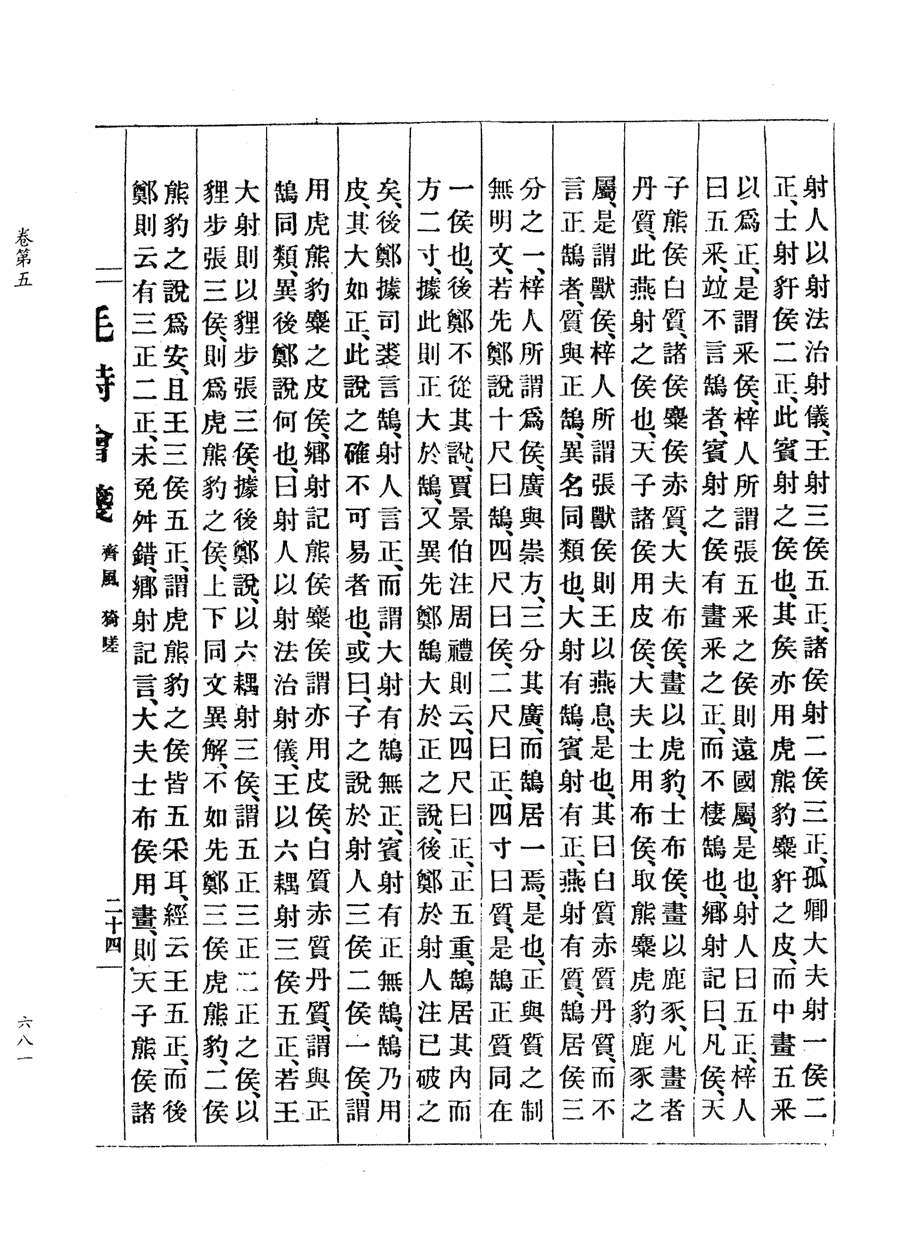 射人以射法治射儀、王射三侯五正、諸侯射二侯三正、孤卿大夫射一侯二
正、士射豻侯二正、此賓射之侯也、其侯亦用虎熊豹麋豻之皮、而中畫五釆
以爲正、是謂釆侯、梓人所謂張五釆之侯則遠國屬、是也、射人曰五正、梓人
曰五釆、竝不言鵠者、賓射之侯有畫釆之正、而不棲鵠也、鄉射記曰、凡侯、天
子熊侯白質、諸侯麋侯赤質、大夫布侯、畫以虎豹、士布侯、畫以鹿豕、凡畫者
丹質、此燕射之侯也、天子諸侯用皮侯、大夫士用布侯、取熊麋虎豹鹿豕之
屬、是謂獸侯、梓人所謂張獸侯則王以燕息、是也、其曰白質赤質丹質、而不
言正鵠者、質與正鵠、異名同類也、大射有鵠、賓射有正、燕射有質、鵠居侯三
分之一、梓人所謂爲侯、廣與崇方、三分其廣、而鵠居一焉、是也、正與質之制
無明文、若先鄭說十尺曰鵠、四尺曰侯、二尺曰正、四寸曰質、是鵠正質同在
一侯也、後鄭不從其說、賈景伯注周禮則云、四尺曰正、正五重、鵠居其內而
方二寸、據此則正大於鵠、又異先鄭鵠大於正之說、後鄭於射人注已破之
矣、後鄭據司裘言鵠、射人言正、而謂大射有鵠無正、賓射有正無鵠、鵠乃用
皮、其大如正、此說之確不可易者也、或曰、子之說於射人三侯二侯一侯、謂
用虎熊豹麋之皮侯、鄉射記熊侯麋侯謂亦用皮侯、白質赤質丹質、謂與正
鵠同類、異後鄭說何也、曰射人以射法治射儀、王以六耦射三侯五正、若王
大射則以貍步張三侯、據後鄭說、以六耦射三侯、謂五正三正二正之侯、以
貍步張三侯、則爲虎熊豹之侯、上下同文異解、不如先鄭三侯虎熊豹、二侯
熊豹之說爲安、且王三侯五正、謂虎熊豹之侯皆五采耳、經云王五正、而後
鄭則云有三正二正、未免舛錯、鄉射記言、大夫士布侯用畫、則天子熊侯諸
毛詩會箋 齊風 猗嗟 二十四
卷第五 六八一